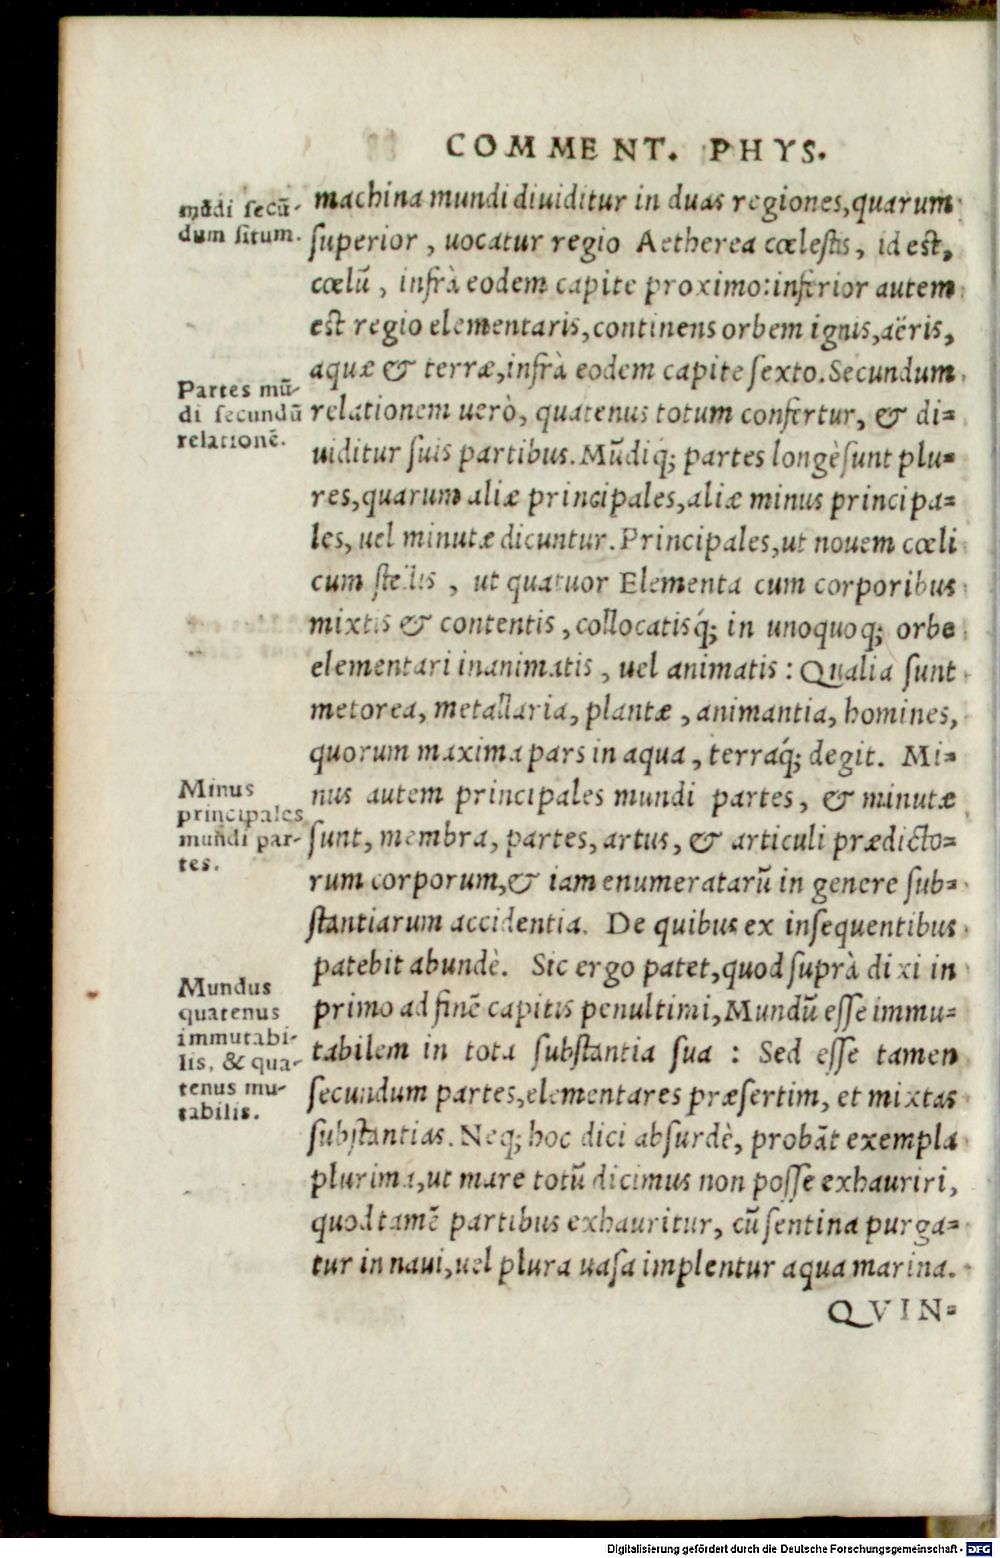 COMMENT. PHYS.
mūdi secū-
dum situm.
machina mundi diuiditur in duas regiones, quarum
superior, uocatur regio Aetherea cœlestis, id est,
cœlū, infrà eodem capite proximo: inferior autem
est regio elementaris, continens orbem ignis, aëris,
aquæ & terræ, infrà eodem capite sexto. Secundum
Partes mū-
di secundū
relationē.
relationem uerò, quatenus totum confertur, & di-
uiditur suis partibus. Mūdiq; partes longè sunt plu-
res, quarum aliæ principales, aliæ minus principa-
les, uel minutæ dicuntur. Principales, ut nouem cœli
cum stellis, ut quatuor Elementa cum corporibus
mixtis & contentis, collocatisq́; in unoquoq; orbe
elementari inanimatis, uel animatis: Qualia sunt
metorea, metallaria, plantæ, animantia, homines,
quorum maxima pars in aqua, terraq́; degit. Mi-
Minus
principales
mundi par-
tes.
nus autem principales mundi partes, & minutæ
sunt, membra, partes, artus, & articuli prædicto-
rum corporum, & iam enumeratarū in genere sub-
stantiarum accidentia. De quibus ex insequentibus
patebit abundè. Sic ergo patet, quod suprà dixi in
Mundus
quatenus
immutabi-
lis, & qua-
tenus mu-
tabilis.
primo ad finē capitis penultimi, Mundū esse immu-
tabilem in tota substantia sua: Sed esse tamen
secundum partes, elementares præsertim, et mixtas
substantias. Neq; hoc dici absurdè, probāt exempla
plurima, ut mare totū dicimus non posse exhauriri,
quod tamē partibus exhauritur, cū sentina purga-
tur in naui, uel plura uasa implentur aqua marina.
QVIN-
Digitalisierung gefördert durch die Deutsche Forschungsgemeinschaft - DFG